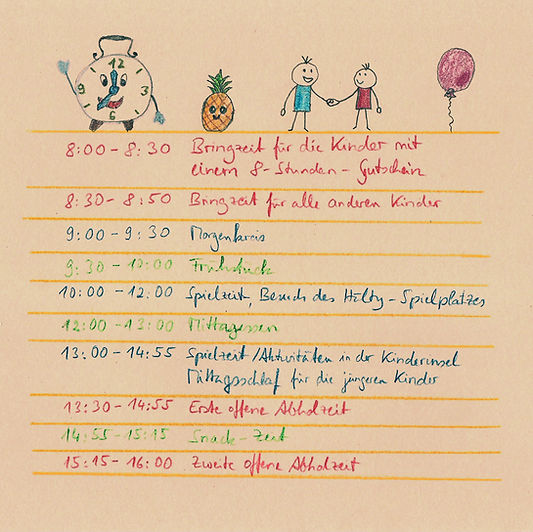 12
9 3
6
8:00 - 8:30 Bringzeit für die Kinder mit
einem 8-Stunden-Gutschein
8:30 - 8:50 Bringzeit für alle anderen Kinder
9:00 - 9:30 Morgenkreis
9:30 - 10:00 Frühstück
10:00 - 12:00 Spielzeit, Besuch des Hilty-Spielplatzes
12:00 - 13:00 Mittagessen
13:00 - 14:55 Spielzeit/Aktivitäten in der Kinderinsel
Mittagsschlaf für die jüngeren Kinder
13:30 - 14:55 Erste offene Abholzeit
14:55 - 15:15 Snack-Zeit
15:15 - 16:00 Zweite offene Abholzeit